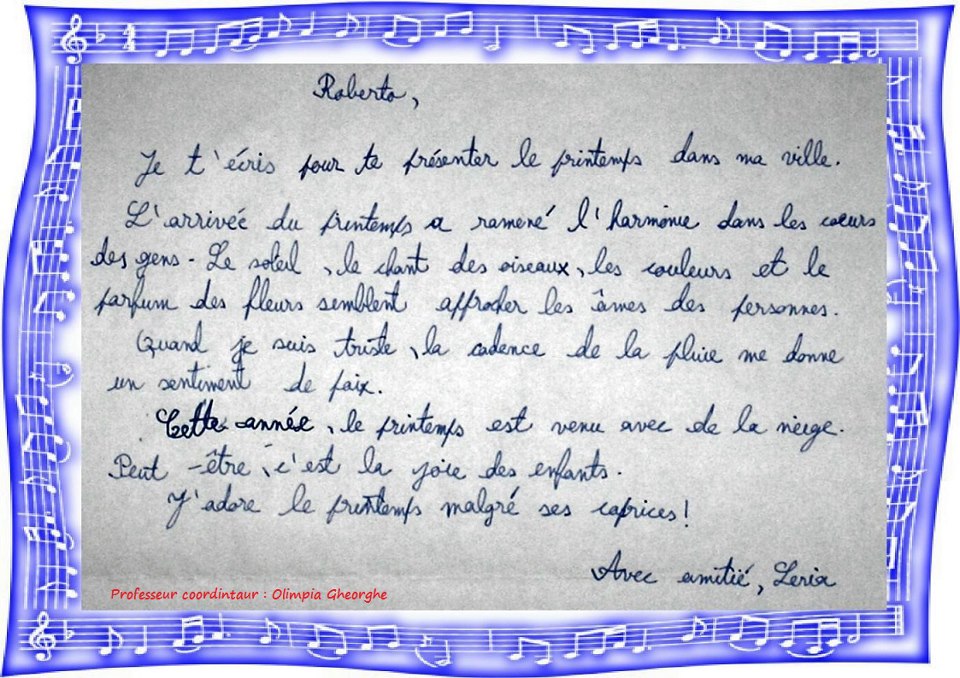 Roberto,
Je t'écris pour te présenter le printemps dans ma ville.
L'arrivée du printemps a ramené l'harmonie dans les cœurs
des gens. Le soleil, le chant des oiseaux, les couleurs et le
parfum des fleurs semblent approcher les âmes des personnes.
Quand je suis triste, la cadence de la pluie me donne
un sentiment de paix.
Cette année, le printemps est venu avec de la neige.
Peut-être, c'est la joie des enfants.
J'adore le printemps malgré ses caprices!
Avec amitié, Leria
Professeur coordintaur : Olimpia Gheorghe